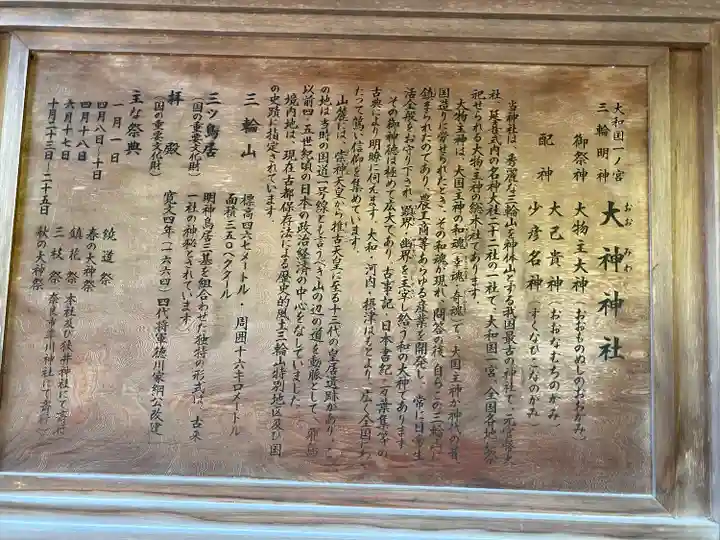 大和国一ノ宮
三輪明神
大神神社
おおみわ
御祭神 大物主大神(おおものぬしのおおかみ)
大己貴神(おおなむちのかみ)
配神
少彦名神(すくなびこなのかみ)
当神社は、秀麗な三輪山を神体山とする我国最古の神社で、元官幣大
社、延喜式内の名神大社、二十二社の一社で、大和国一宮、全国各地に祭
祀せられる大物主神の総本社であります。
大物主神は、大国主神の和魂(幸魂・奇魂)で、大国主神が神代の昔、
国造りに労せられたとき、その和魂が現れ、問答の後、自らこの三輪山に
鎮まられたのであり、農工商等あらゆる産業を開発し、常に日常生
活全般をお守り下され、顕界・幽界を主宰し給う和の大神であります
その御神徳は極めて広大であり、古事記・日本書紀・万葉集等の
古典により明瞭に伺えます。大和・河内・摂津はもとより、広く全国にわ
たって篤い信仰を集めています。
山麓には、崇神天皇から推古天皇に至る十二代の皇居遺跡があり、こ
の地は古朝の国道一号線とも言うべき山の辺の道を動脈として、
以前四・五世紀頃の日本の政治経済の中心をなしていました。
境内地は、現在古都保存法による歴史的風土三輪山特別地区及び国
の史跡に指定されています。
三輪山 標高四六七メートル・周囲十六キロメートル
面積三五〇ヘクタール
三ツ鳥居 明神鳥居三基を組合わせた独特の形式は、古来
(国の重要文化財) 一社の神秘とされています
拝殿 寛文四年(一六六四)四代将軍徳川家綱公改建
(国の重要文化財)
主な祭典
一月一日 繞道祭
四月八日~十日 春の大神祭
四月十八日 鎮花祭 本社及び狭井神社にて斎行
六月十七日 三枝祭 奈良市率川神社にて斎行
十月二十三日~二十五日 秋の大神祭